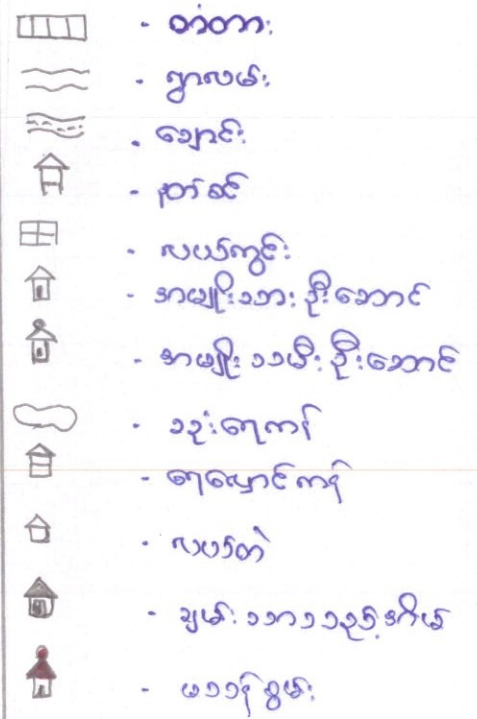 - တံတား
- ရွာလမ်း
- ချောင်း
- နတ်စင်
- လယ်ကွင်း
- အမျိုးသားဦးဆောင်
- အမျိုးသမီးဦးဆောင်
- သုံးရေကန်
- ရေလှောင်ကန်
- လယ်တဲ
- ချမ်းသာသည့်အိမ်
- မသန်စွမ်း